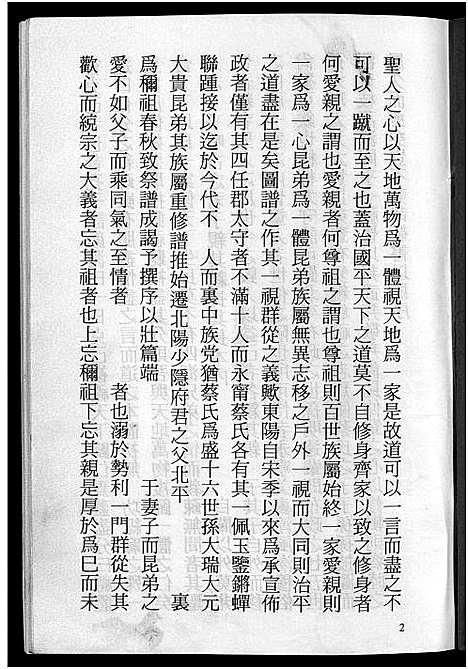 聖人之心以天地萬物爲一體視天地爲一家是故道可以一言而盡之不
可以一蹴而至之也蓋治國平天下之道莫不自修身齊家以致之修身者
何愛親之謂也愛親者何尊祖之謂也尊祖則百世族屬始終一家愛親則
一家爲一心昆弟爲一體昆弟族屬無異志移之戶外一視而大同則治平
之道盡在是矣圖譜之作其一視群從之義歟東陽自宋季以來爲承宣佈
政者僅有其四任郡太守者不滿十人而永甯蔡氏各有其一佩玉鑒鏘蟬
聯踵接以迄於今代不　人而裏中族党猶蔡氏爲盛十六世孫大瑞大元
大貴昆弟其族屬重修譜推始遷北陽少隱府君之父北平　　　　裏
爲禰祖春秋致祭譜成謁予撰序以壯篇端　　　　　于妻子而昆弟之
愛不如父子而乘同氣之至情者　　　　者也溺於勢利一門群從失其
歡心而統宗之大義者忘其祖者也上忘禰祖下忘其親是厚於爲巳而未
2